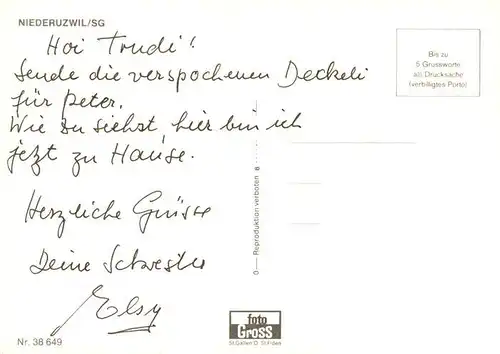 NIEDERUZWIL/SG
Hoi Trudi!
Sende die verspochenen Deckeli
für Peter.
Wie du siehst, hier bin ich
jetzt zu Hause.
Herzliche Grüsse
Deine Schwester
Elsy
Bis zu
5 Grussworte
als Drucksache
(verbilligtes Porto)
Reproduktion verboten
foto
GROSS
St.Gallen
Nr. 38 649